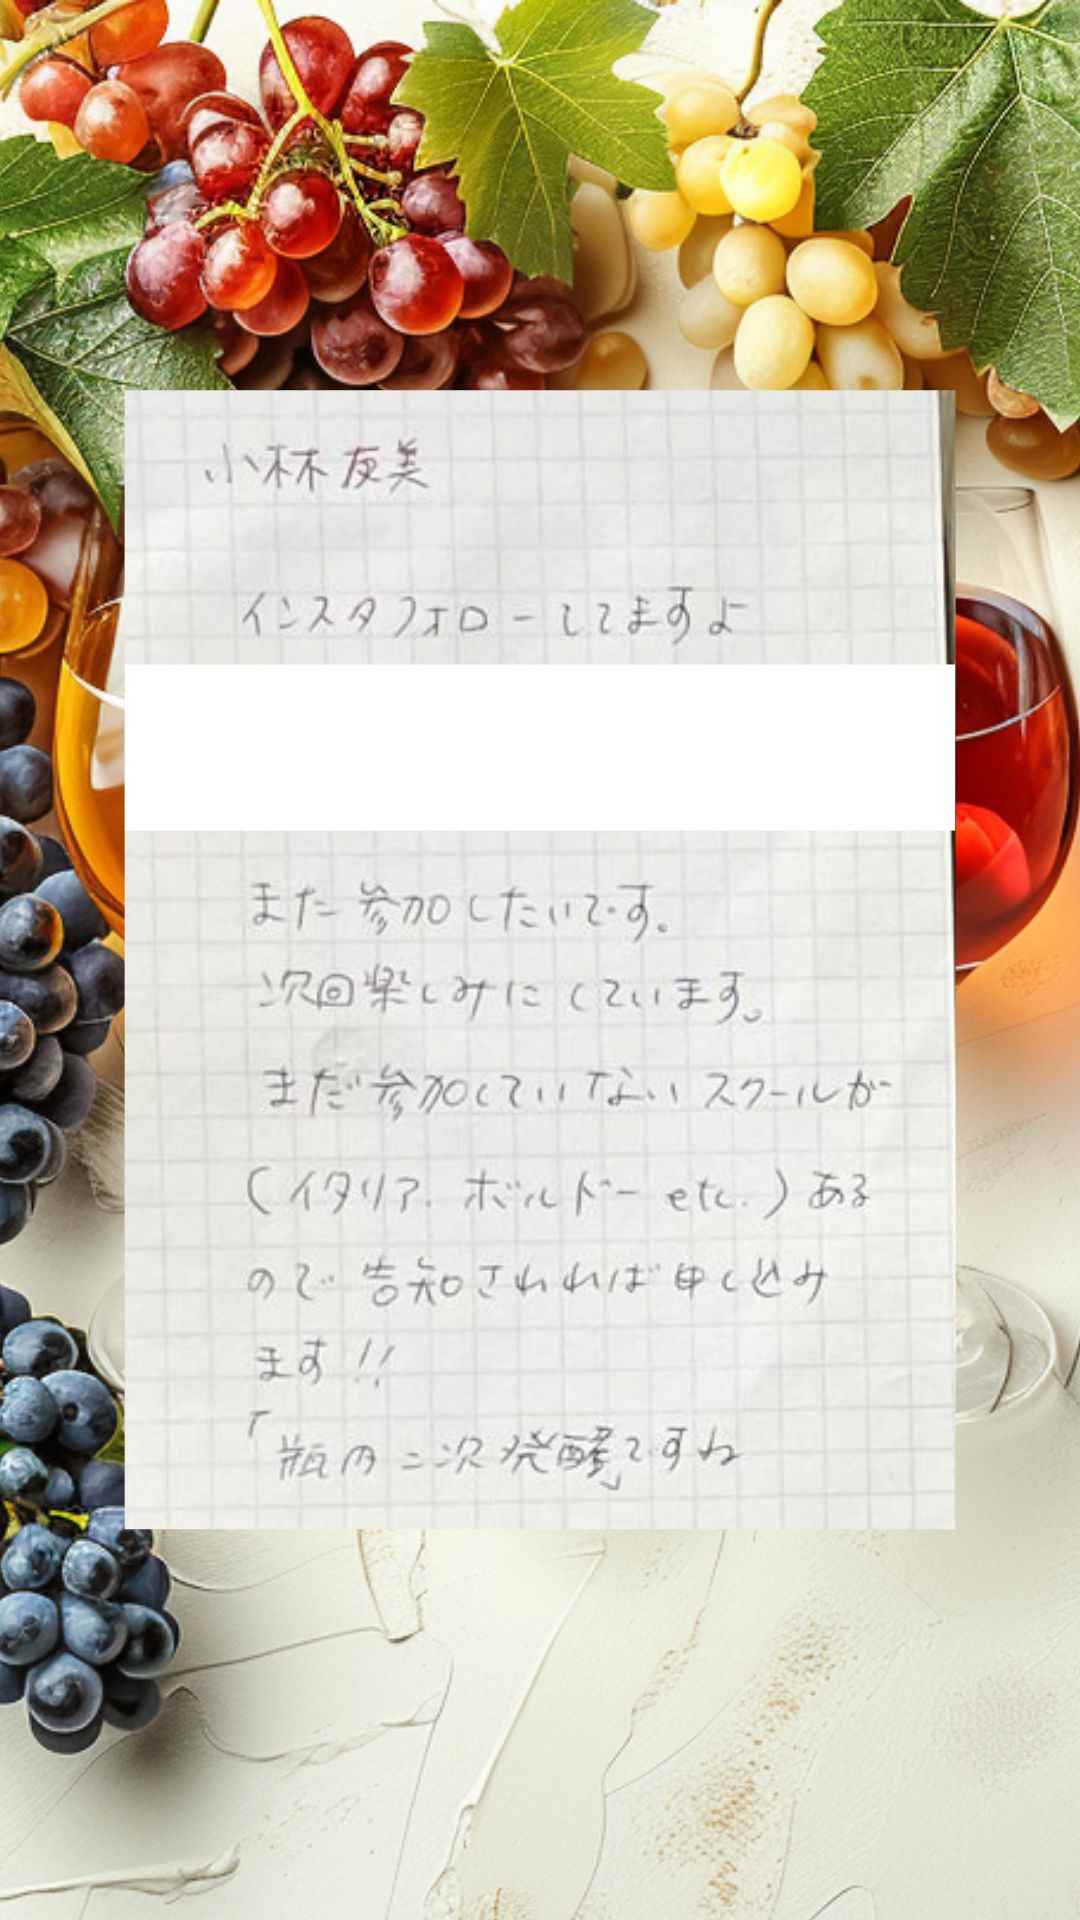 小林友美
インスタフォローしてますよ
また参加したいです。
次回楽しみにしています。
まだ参加していないスクールが
(イタリア.ボルドー etc.)ある
ので告知されれば申し込み
ます!!
「瓶内二次発酵」ですね